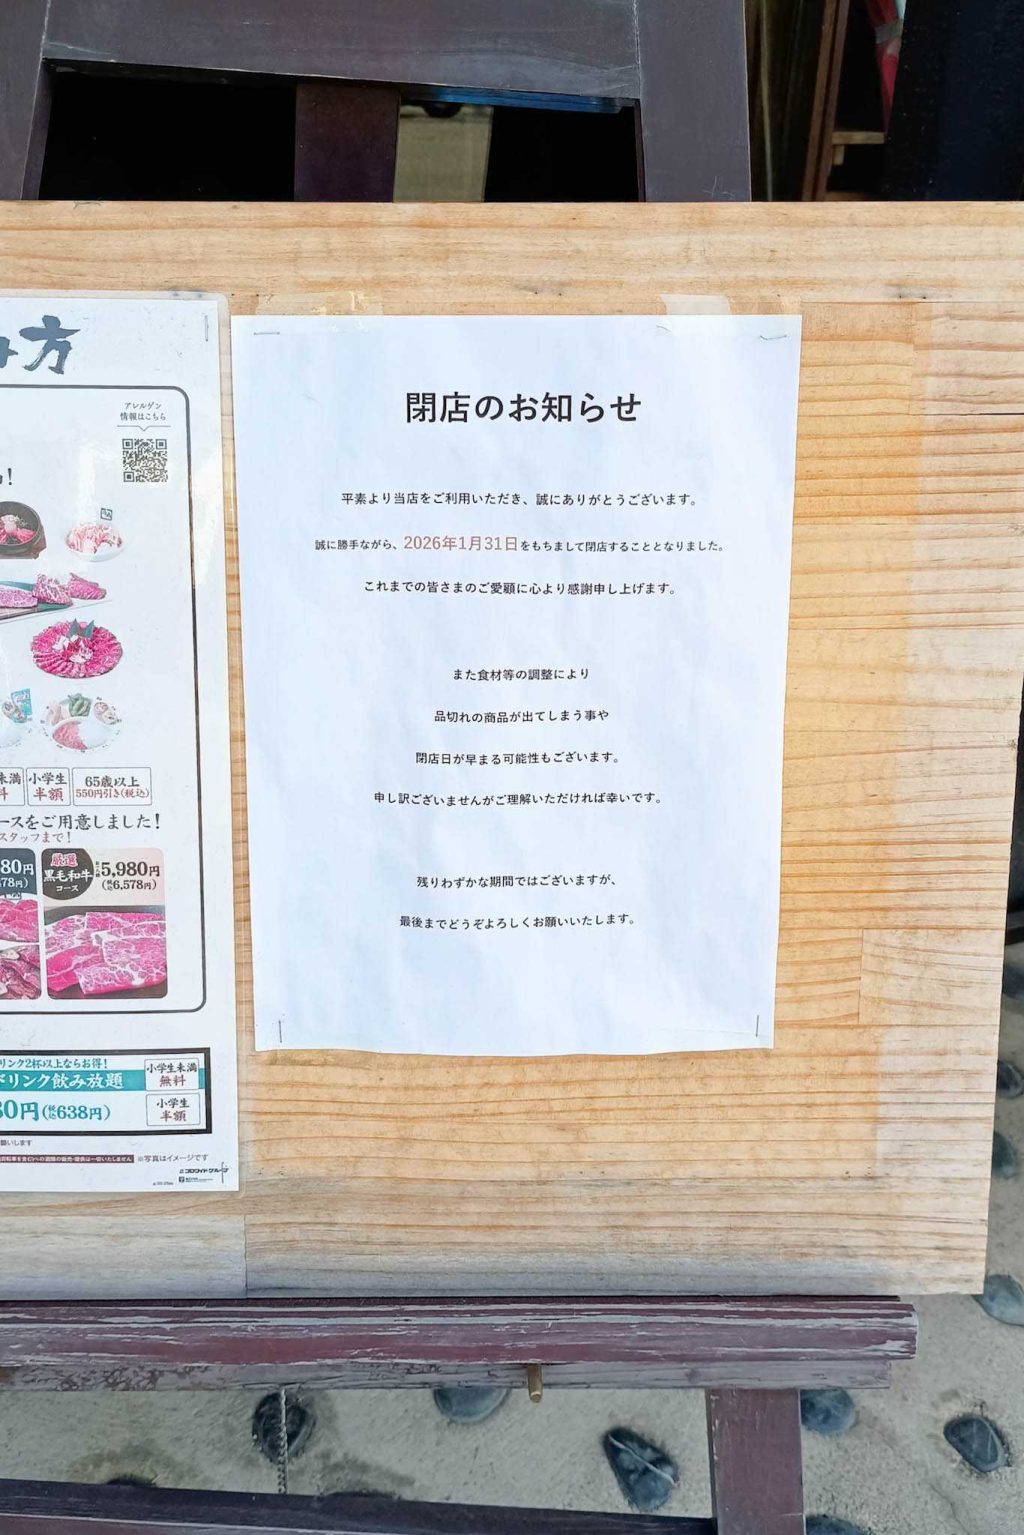 方
アレルゲン
情報はこちら
未満
小学生
半額
65歳以上
550円引き(税込)
ースをご用意しました!
スタッフまで!
80円
78円)
厳選
黒毛和牛
コース
5,980円
(税込6,578円)
リンク2杯以上ならお得!
ドリンク飲み放題
80円(税込638円)
小学生未満
無料
小学生
半額
願いします
※写真はイメージです
コロワイドグループ
閉店のお知らせ
平素より当店をご利用いただき、誠にありがとうございます。
誠に勝手ながら、2026年1月31日をもちまして閉店することとなりました。
これまでの皆さまのご愛顧に心より感謝申し上げます。
また食材等の調整により
品切れの商品が出てしまう事や
閉店日が早まる可能性もございます。
申し訳ございませんがご理解いただければ幸いです。
残りわずかな期間ではございますが、
最後までどうぞよろしくお願いいたします。